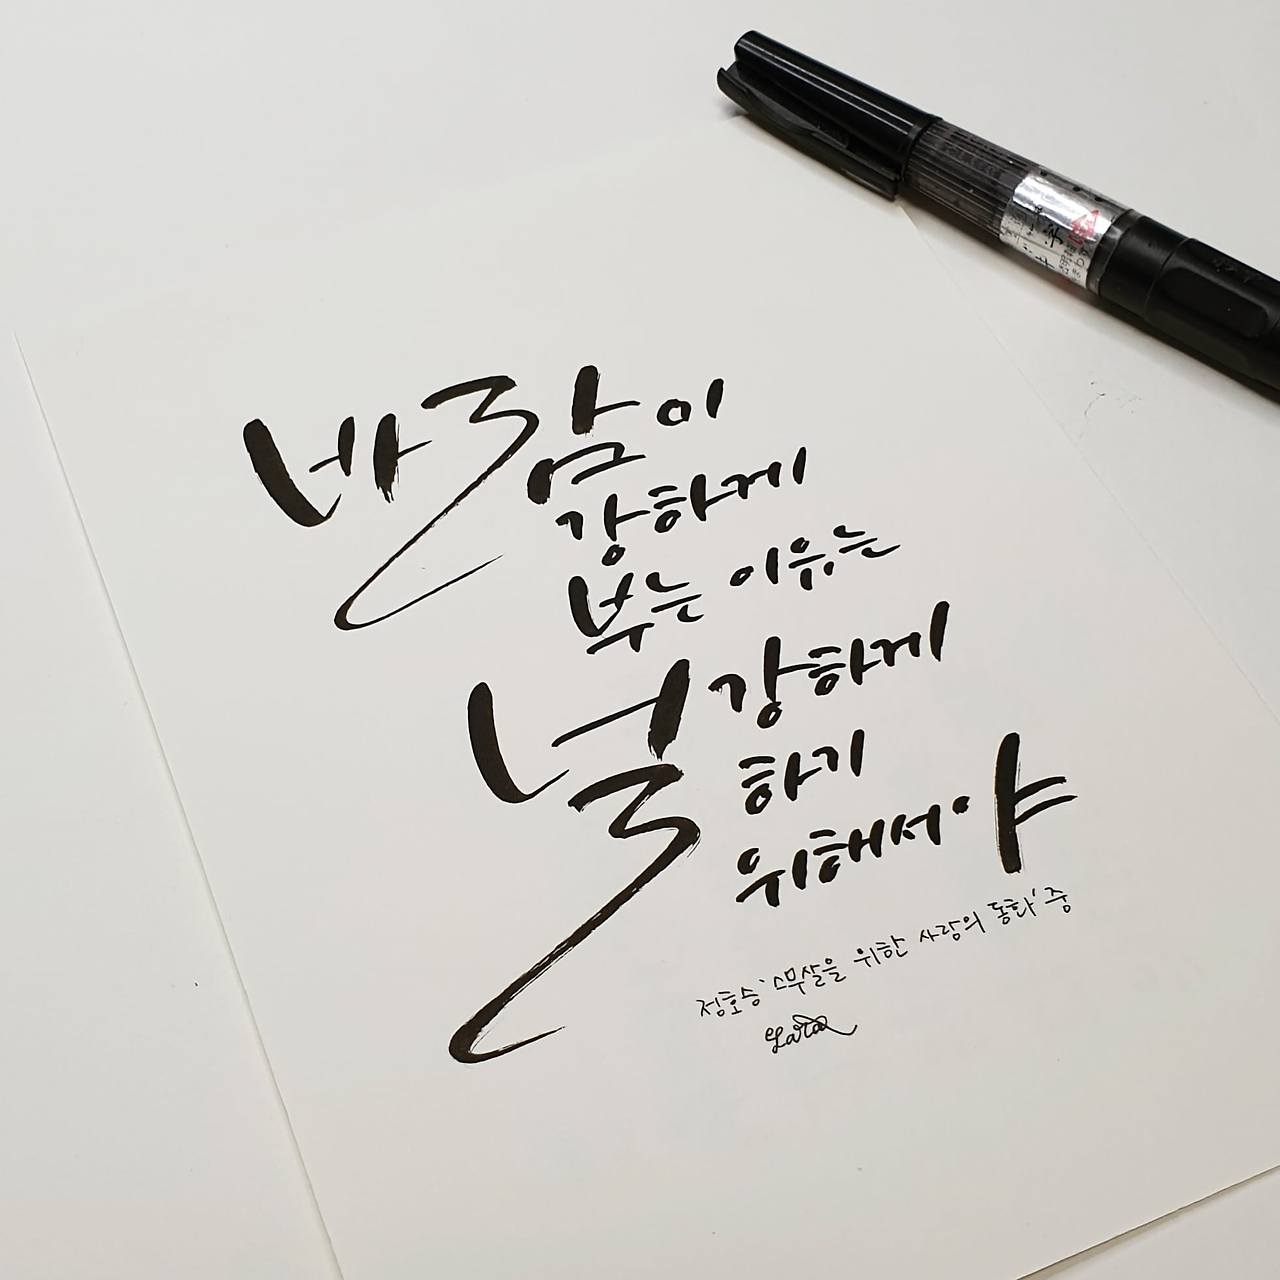 바람이
강하게
부는 이유는
널 강하게
하기
위해서야
정호승 '스무살을 위한 사랑의 동화' 중